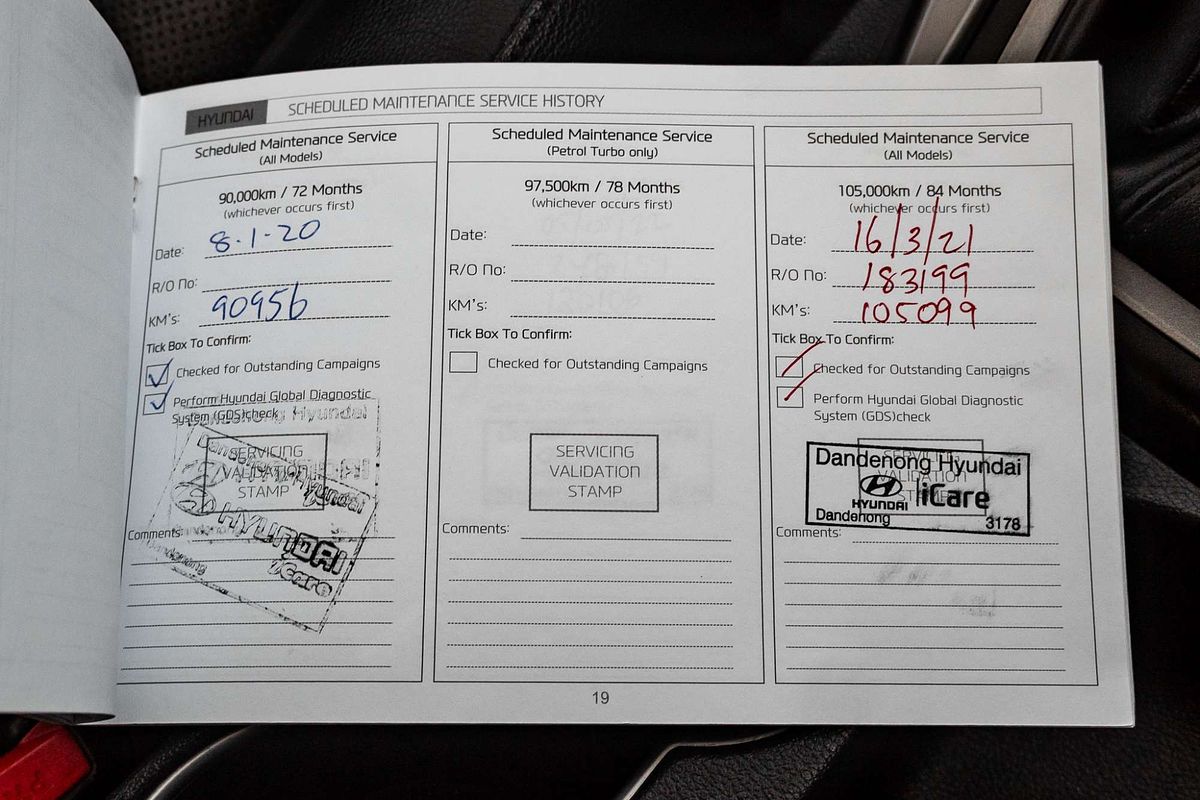 HYUNDAI SCHEDULED MAINTENANCE SERVICE HISTORY
Scheduled Maintenance Service
(All Models)
90,000km / 72 Months
(whichever occurs first)
Date: 8.1.20
R/O No:
KM's: 90956
Tick Box To Confirm:
Checked for Outstanding Campaigns
Perform Hyundai Global Diagnostic
System (GDS)check
SERVICING
VALIDATION
STAMP
HYUNDAI
iCare
Comments:
Scheduled Maintenance Service
(Petrol Turbo only)
97,500km / 78 Months
(whichever occurs first)
Date:
R/O No:
KM's:
Tick Box To Confirm:
Checked for Outstanding Campaigns
SERVICING
VALIDATION
STAMP
Comments:
Scheduled Maintenance Service
(All Models)
105,000km / 84 Months
(whichever occurs first)
Date: 16/3/21
R/O No: 183199
KM's: 105099
Tick Box To Confirm:
Checked for Outstanding Campaigns
Perform Hyundai Global Diagnostic
System (GDS)check
SERVICING
VALIDATION
STAMP
Dandenong Hyundai
HYUNDAI iCare
Dandenong 3178
Comments:
19